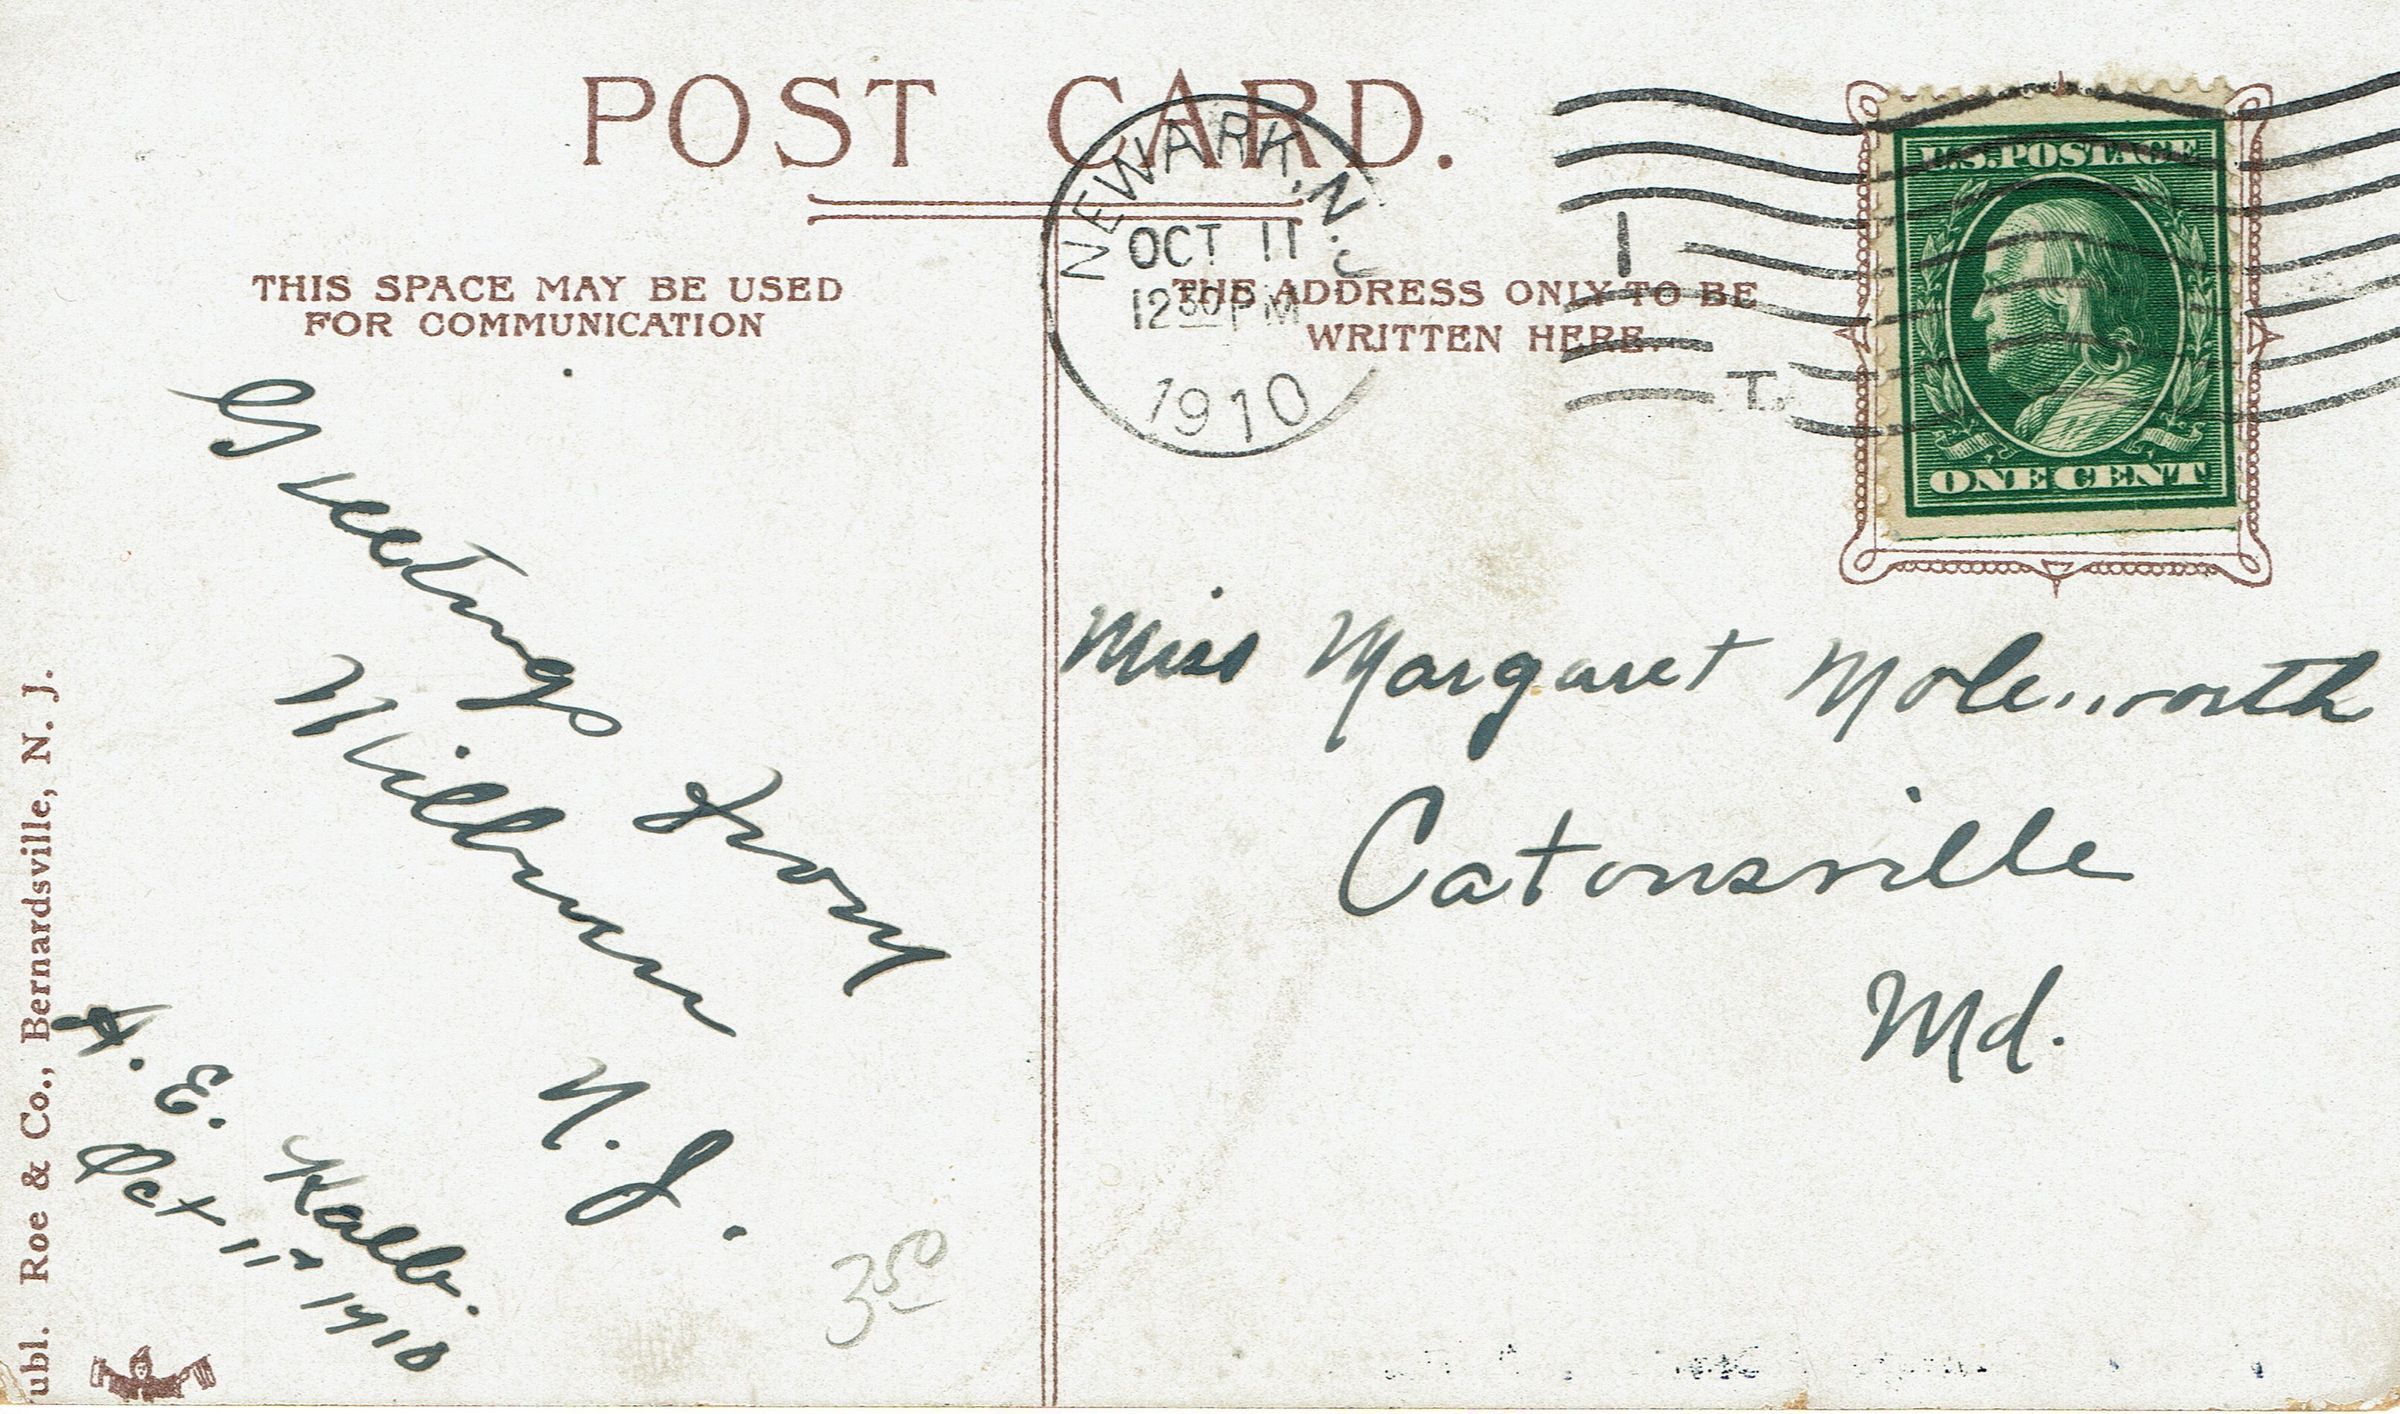 POST CARD.
THIS SPACE MAY BE USED
FOR COMMUNICATION
THE ADDRESS ONLY TO BE
WRITTEN HERE.
NEWARK, N.J.
OCT 11
12 30 PM
1910
1
U.S. POSTAGE
ONE CENT
Greetings from
Milburn
N. J.
H. E. Kalb.
Oct 11th 1910
3 50
Miss Margaret Molesworth
Catonsville
Md.
ubl. Roe & Co., Bernardsville, N. J.